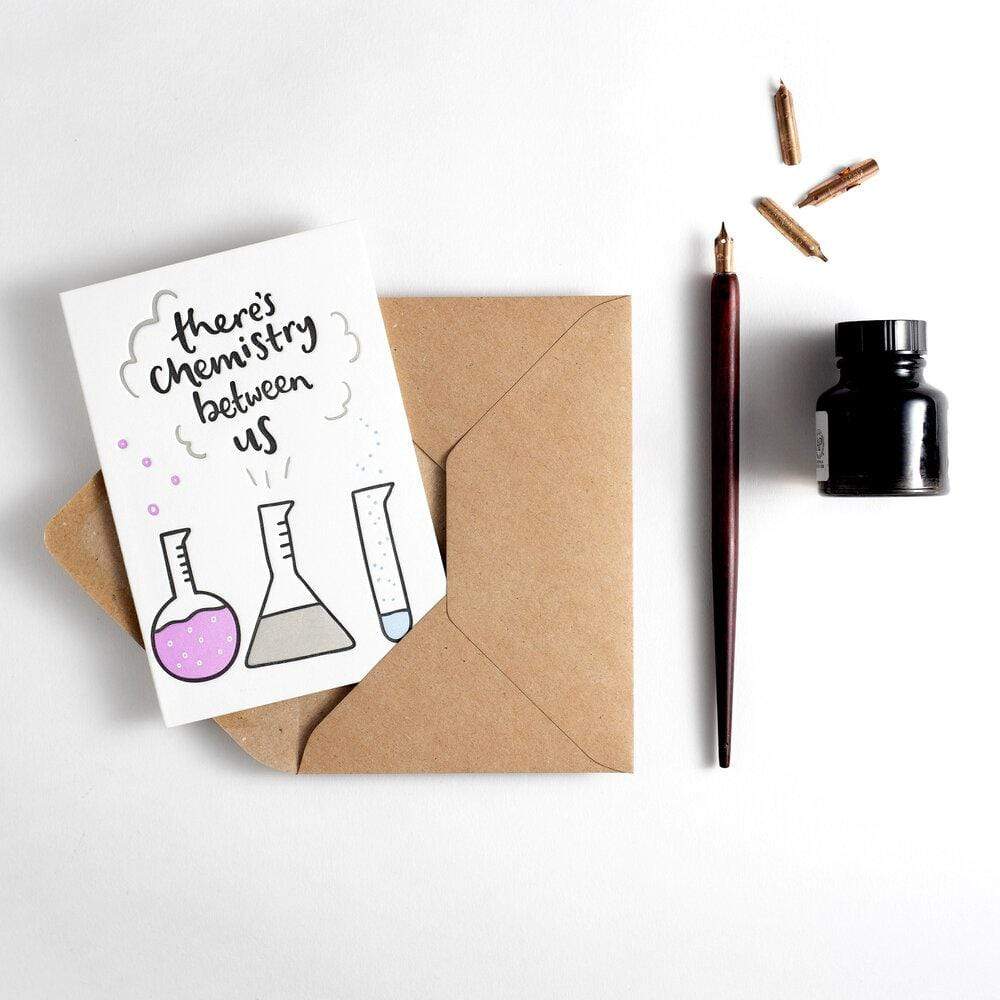 there's
chemistry
between
us